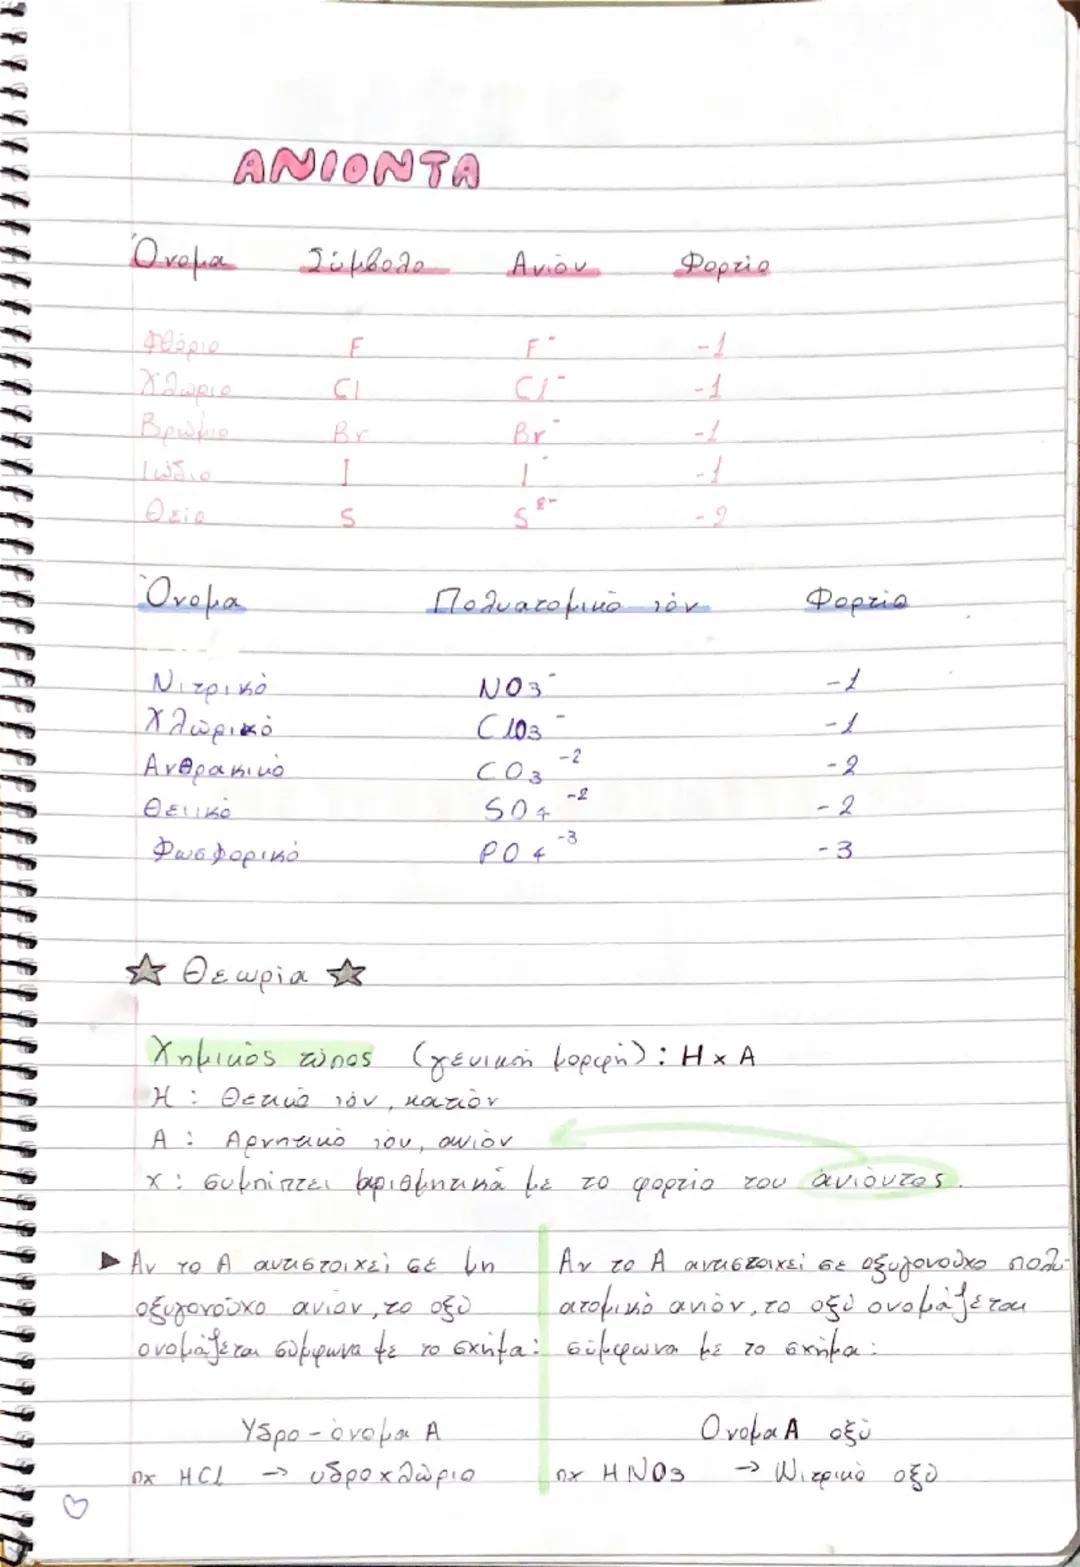 ΑΝΙΟΝΤΑ
Όνομα Σύμβολο Ανιόν Φορτίο
Φθόριο F F⁻ -1
Χλώριο Cl Cl⁻ -1
Βρώμιο Br Br⁻ -1
Ιώδιο I I⁻ -1
Θείο S S²⁻ -2
Όνομα Πολυατομικό ιόν Φορτίο
Νιτρικό NO₃⁻ -1
Χλωρικό ClO₃⁻ -1
Ανθρακικό CO₃⁻² -2
Θειικό SO₄⁻² -2
Φωσφορικό PO₄⁻³ -3
☆ Θεωρία ☆
Χημικός τύπος (γενική μορφή): HxA
H : Θετικό ιόν, κατιόν
A : Αρνητικό ιόν, ανιόν
x : συμπίπτει αριθμητικά με το φορτίο του ανιόντος.
▶ Αν το Α αντιστοιχεί σε μη
οξυγονούχο ανιόν, το οξύ
ονομάζεται σύμφωνα με το σχήμα:
Υδρο-όνομα Α
πχ HCl → υδροχλώριο
Αν το Α αντιστοιχεί σε οξυγονούχο πολυ-
ατομικό ανιόν, το οξύ ονομάζεται
σύμφωνα με το σχήμα:
Όνομα Α οξύ
πχ HNO₃ → Νιτρικό οξύ
♡